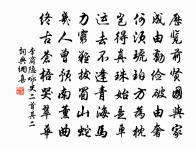 歷覽前賢國與家
成由勤儉破由奢
何須琥珀方為枕
豈得真珠始是車
運去不逢青海馬
力窮難拔蜀山蛇
幾人曾預南薰曲
終古蒼梧哭翠華
李商隱詠史二首其二
詞典網集